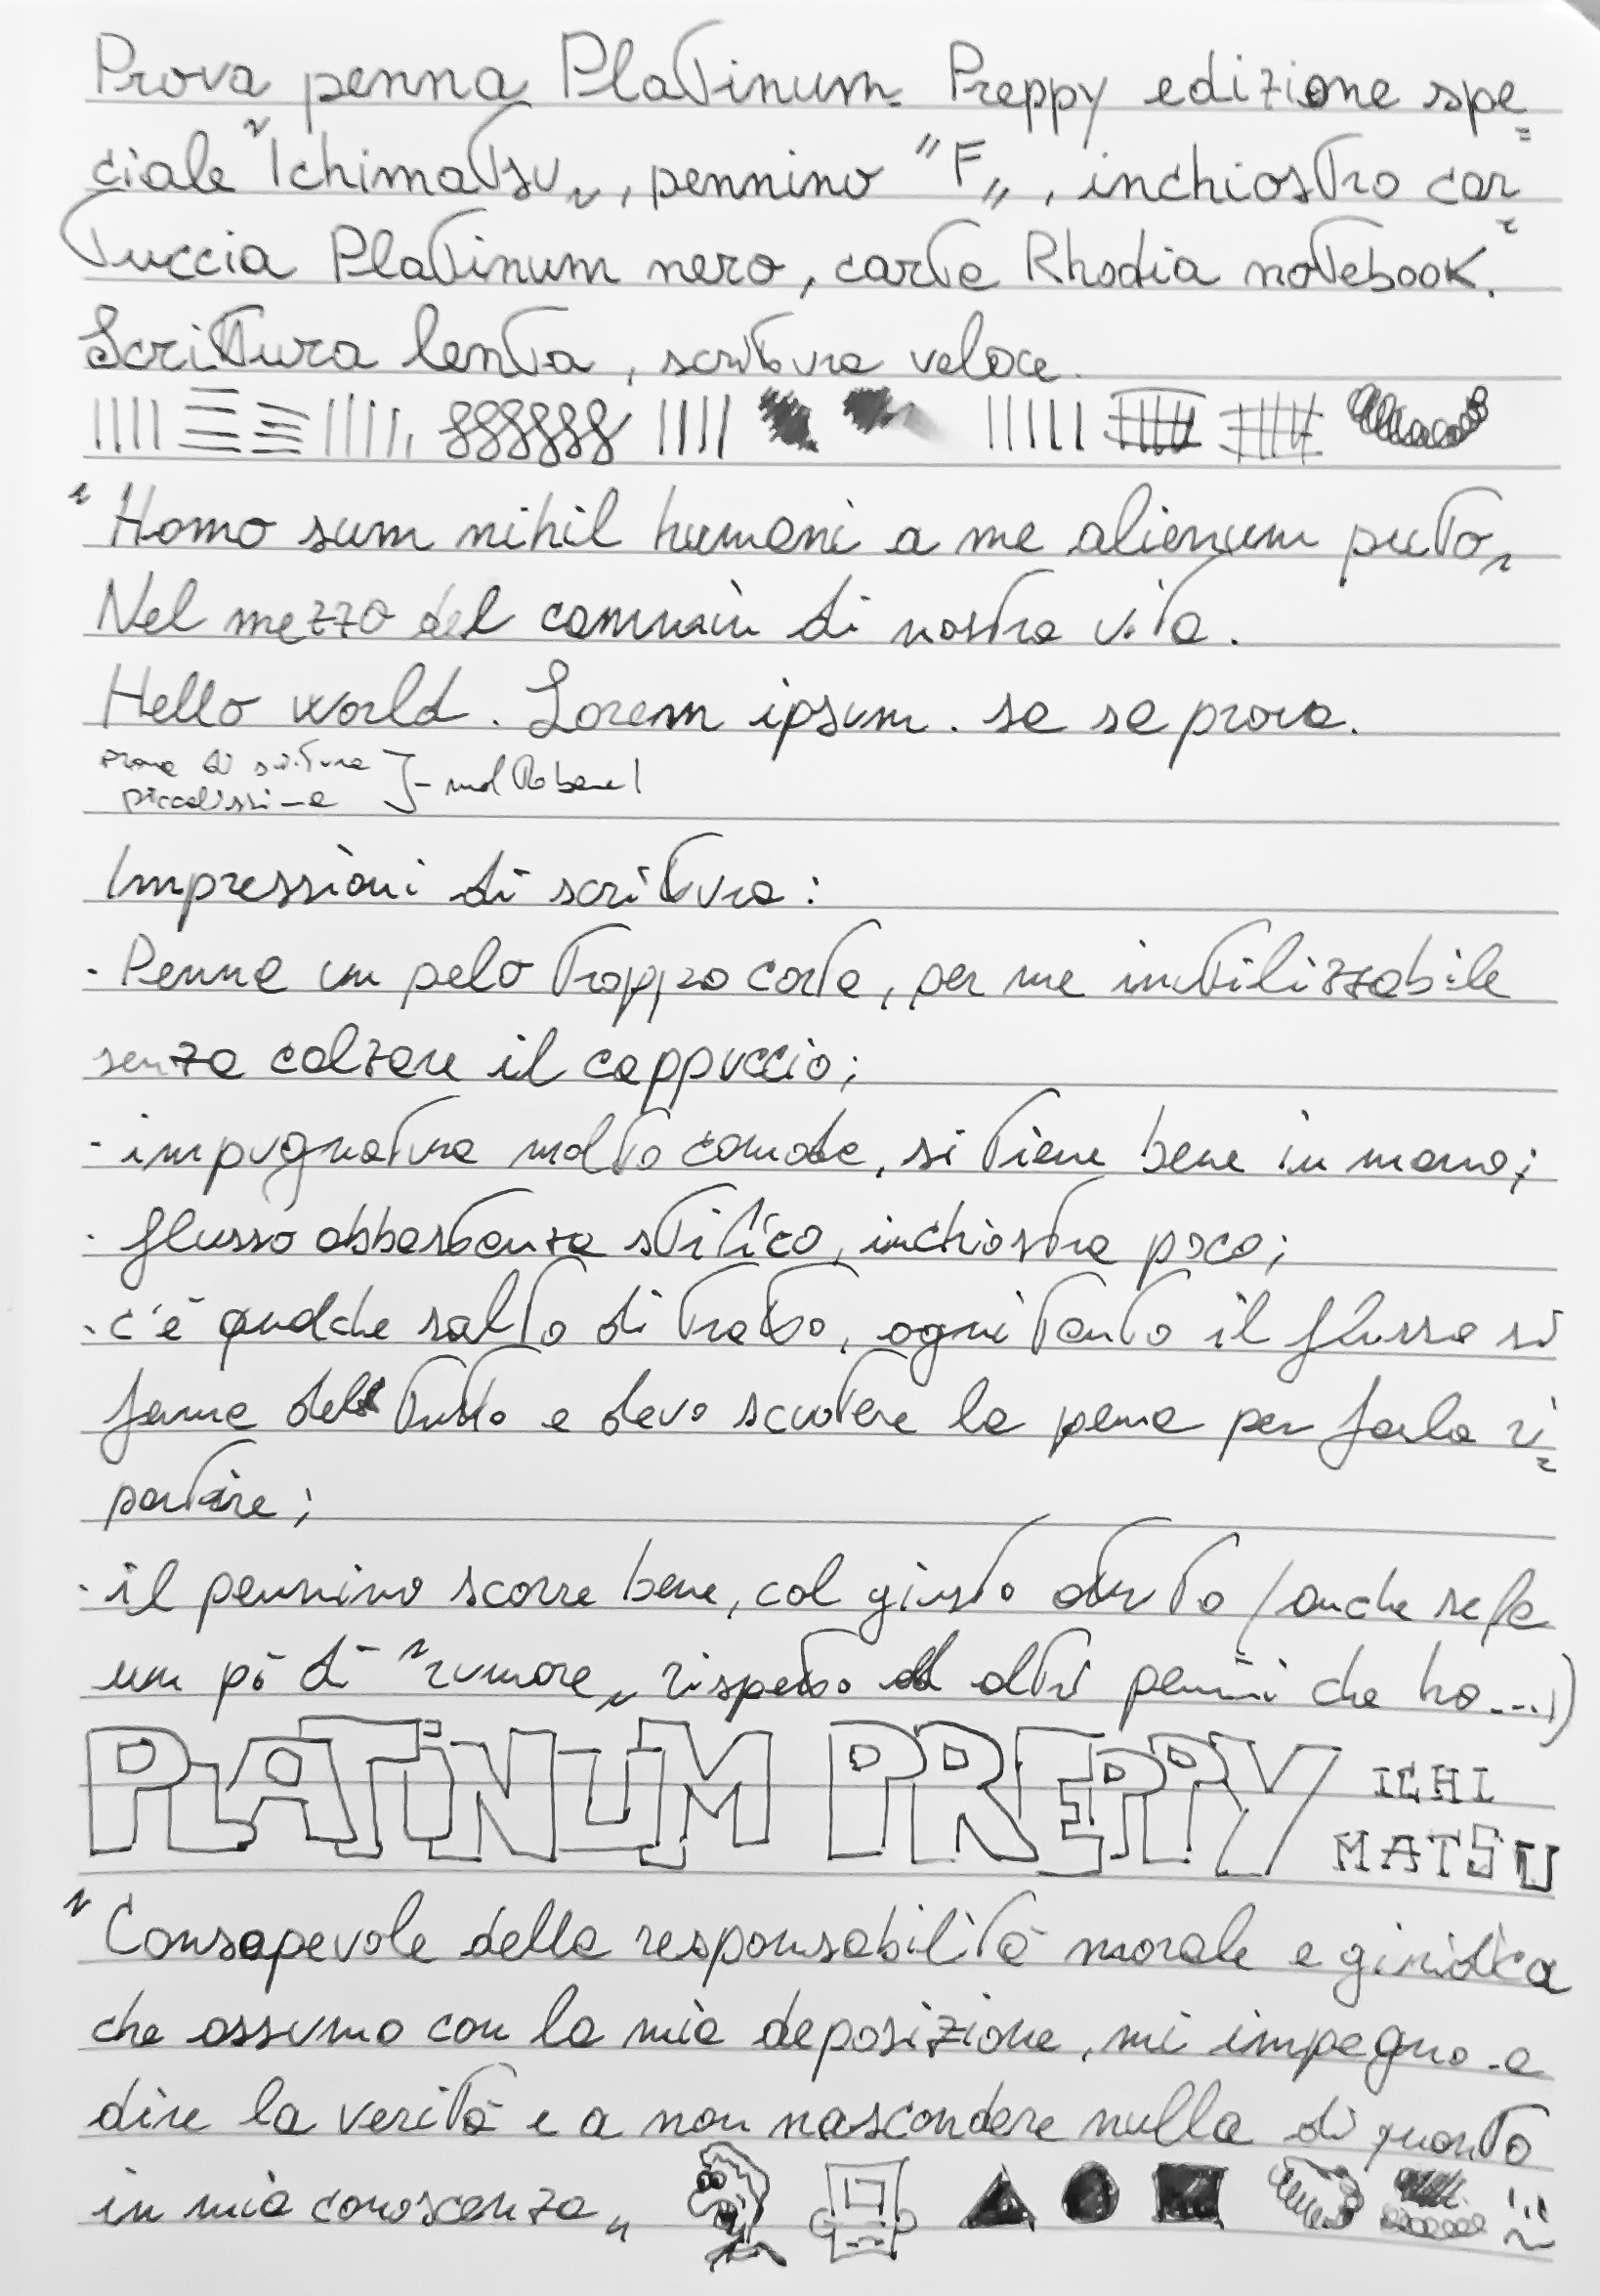 Prova penna Platinum Preppy edizione spe=
ciale "Ichimatsu", pennino "F", inchiostro car=
tuccia Platinum nero, carta Rhodia notebook.
Scrittura lenta, scrittura veloce.
"Homo sum nihil humani a me alienum puto"
Nel mezzo del cammin di nostra vita.
Hello world. Lorem ipsum. sa sa prova.
prova di scrittura
piccolissima } - molto bene!
Impressioni di scrittura:
- Penna un pelo troppo corta, per me inutilizzabile
senza calzare il cappuccio;
- impugnatura molto comoda, si tiene bene in mano;
- flusso abbastanza stitico, inchiostra poco;
- c'è qualche salto di tratto, ogni tanto il flusso si
ferma del tutto e devo scuotere la penna per farla ri=
partire;
- il pennino scorre bene, col giusto attrito (anche se fa
un pò di "rumore" rispetto ad altri pennini che ho...)
PLATINUM PREPPY ICHI
MATSU
"Consapevole della responsabilità morale e giuridica
che assumo con la mia deposizione, mi impegno a
dire la verità e a non nascondere nulla di quanto
in mia conoscenza"